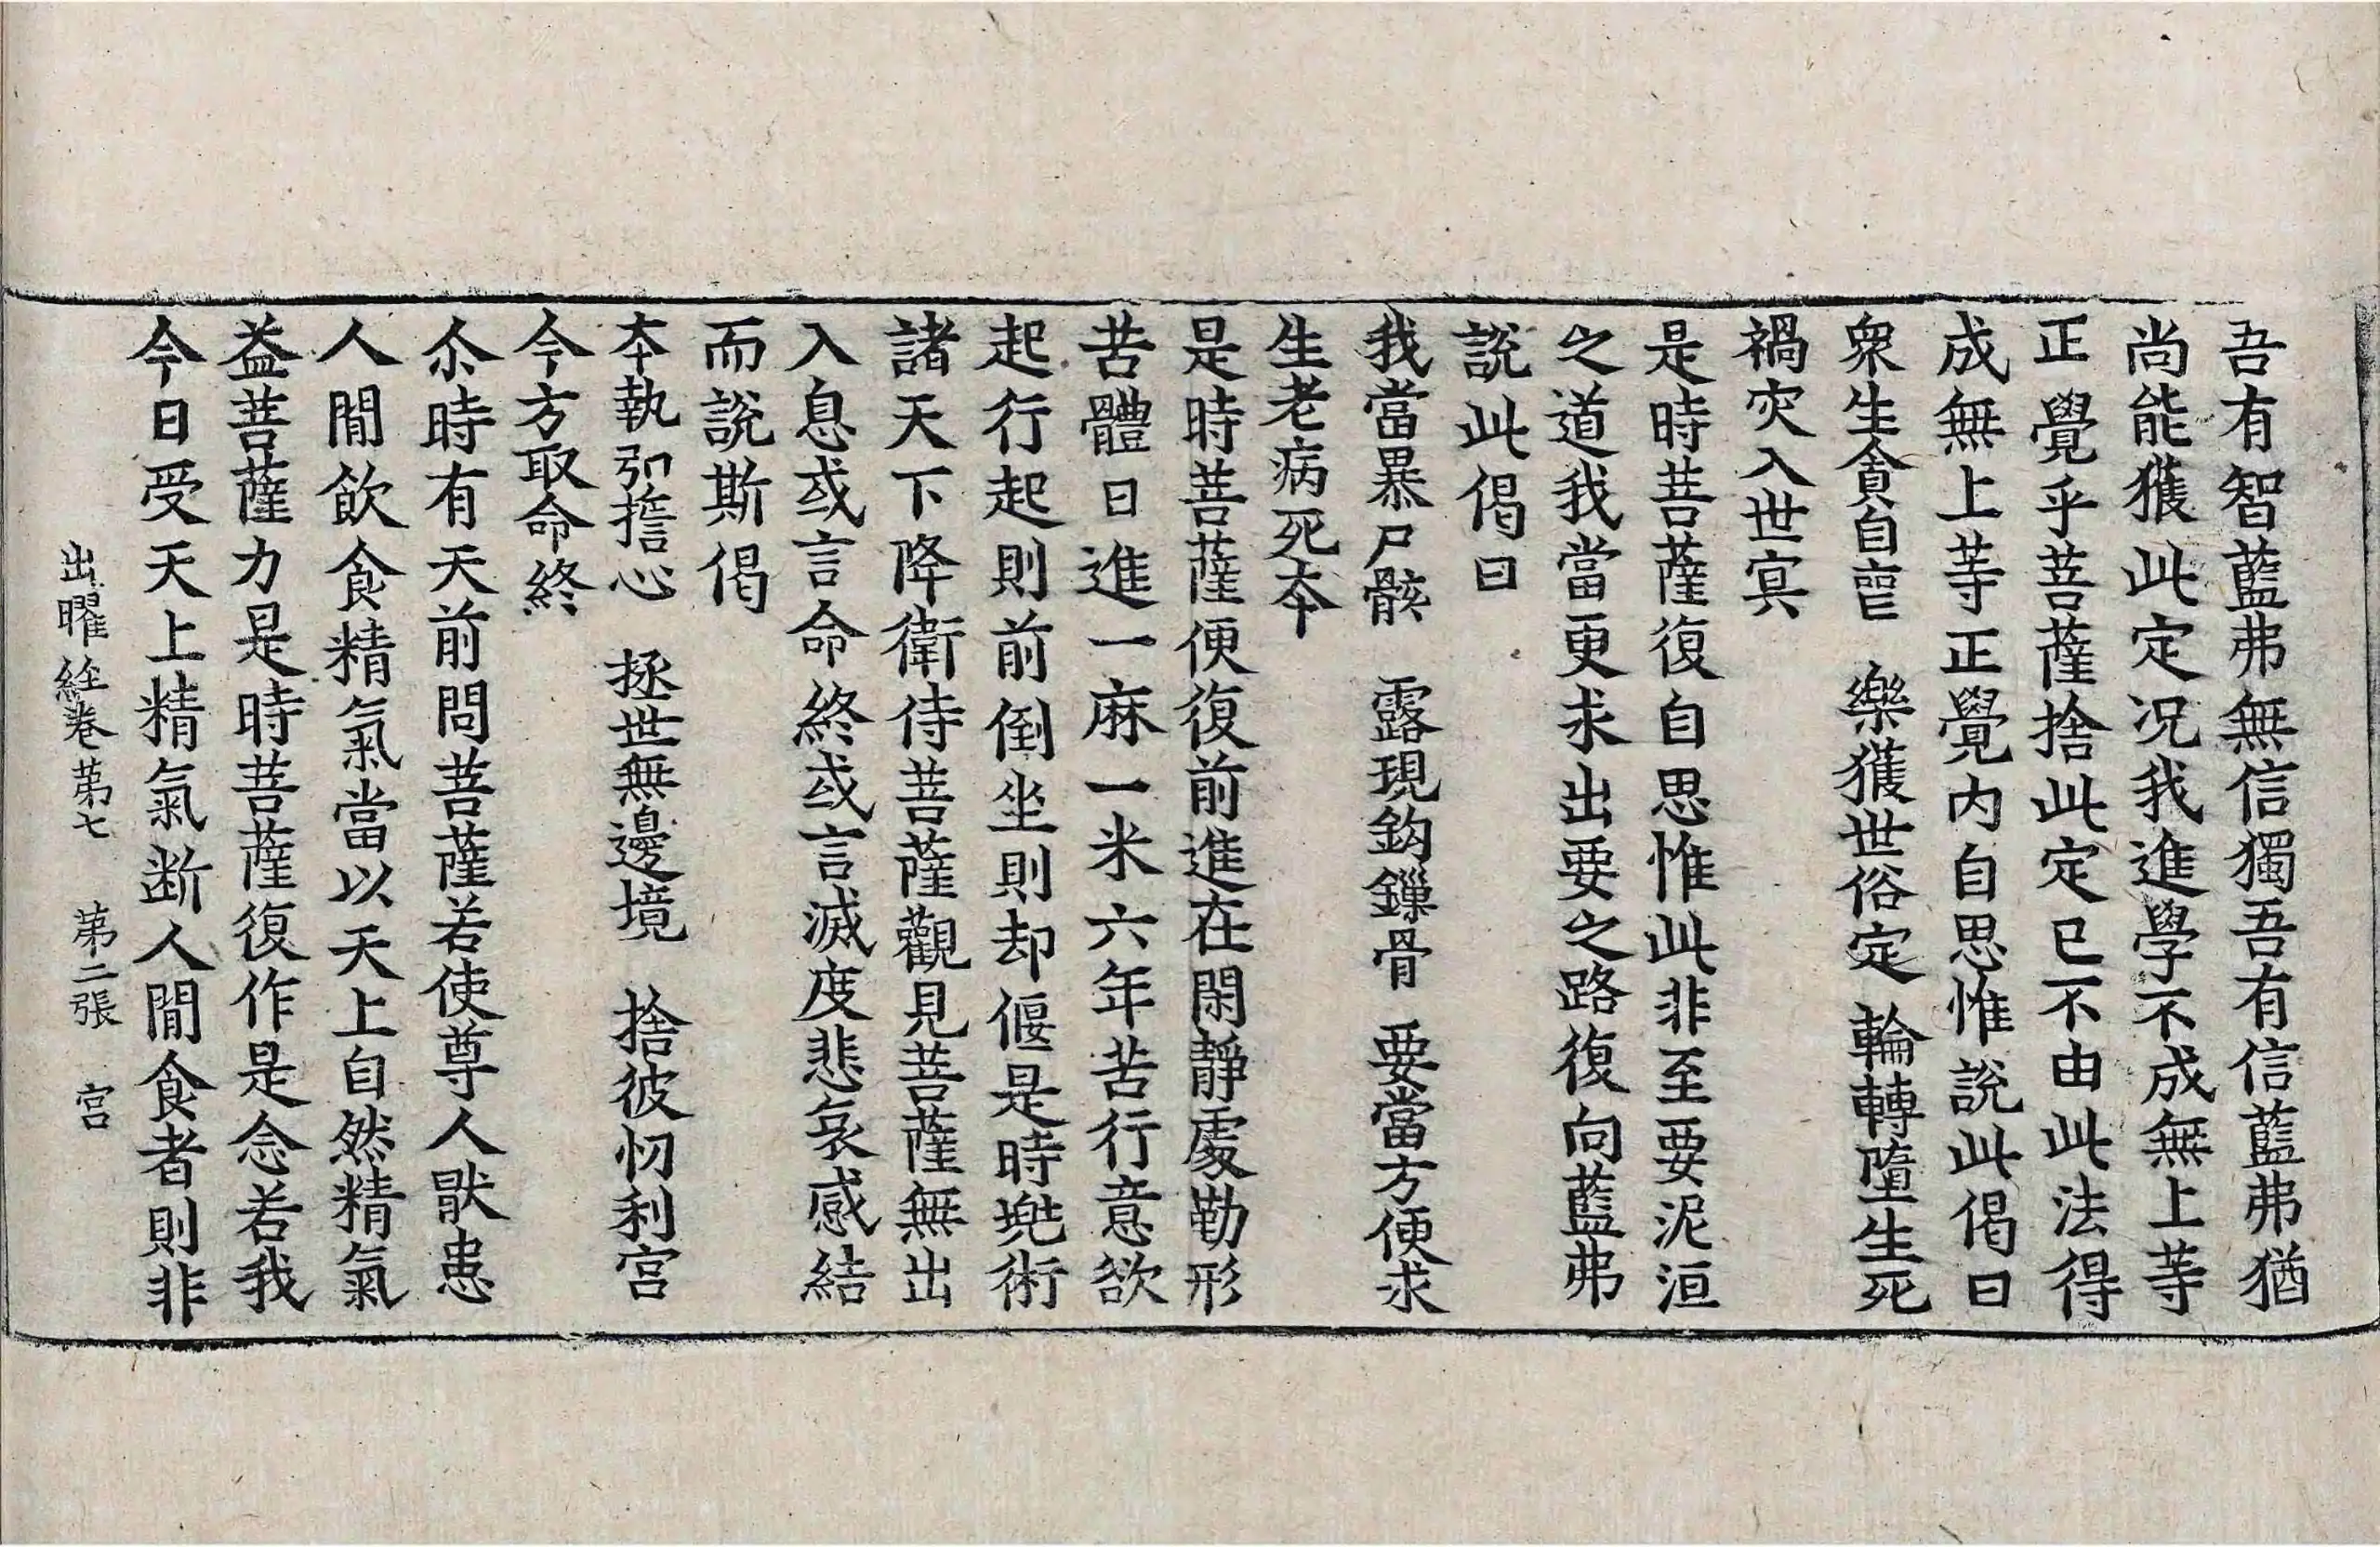 吾有智藍弗無信獨吾有信藍弗猶
尚能獲此定况我進學不成無上等
正覺乎菩薩捨此定已不由此法得
成無上等正覺內自思惟說此偈曰
衆生貪自喪　樂獲世俗定　輪轉墮生死
禍灾入世冥
是時菩薩復自思惟此非至要泥洹
之道我當更求出要之路復向藍弗
說此偈曰
我當暴尸骸　露現鈎鏁骨　要當方便求
生老病死本
是時菩薩便復前進在閑靜處勤形
苦體日進一麻一米六年苦行意欲
起行起則前倒坐則却偃是時兠術
諸天下降衛侍菩薩觀見菩薩無出
入息或言命終或言滅度悲哀感結
而說斯偈
本執弘擔心　拯世無邊境　捨彼忉利宮
今方取命終
尒時有天前問菩薩若使尊人猒患
人間飲食精氣當以天上自然精氣
益菩薩力是時菩薩復作是念若我
今日受天上精氣断人間食者則非
出曜経卷苐七　苐二張　宫